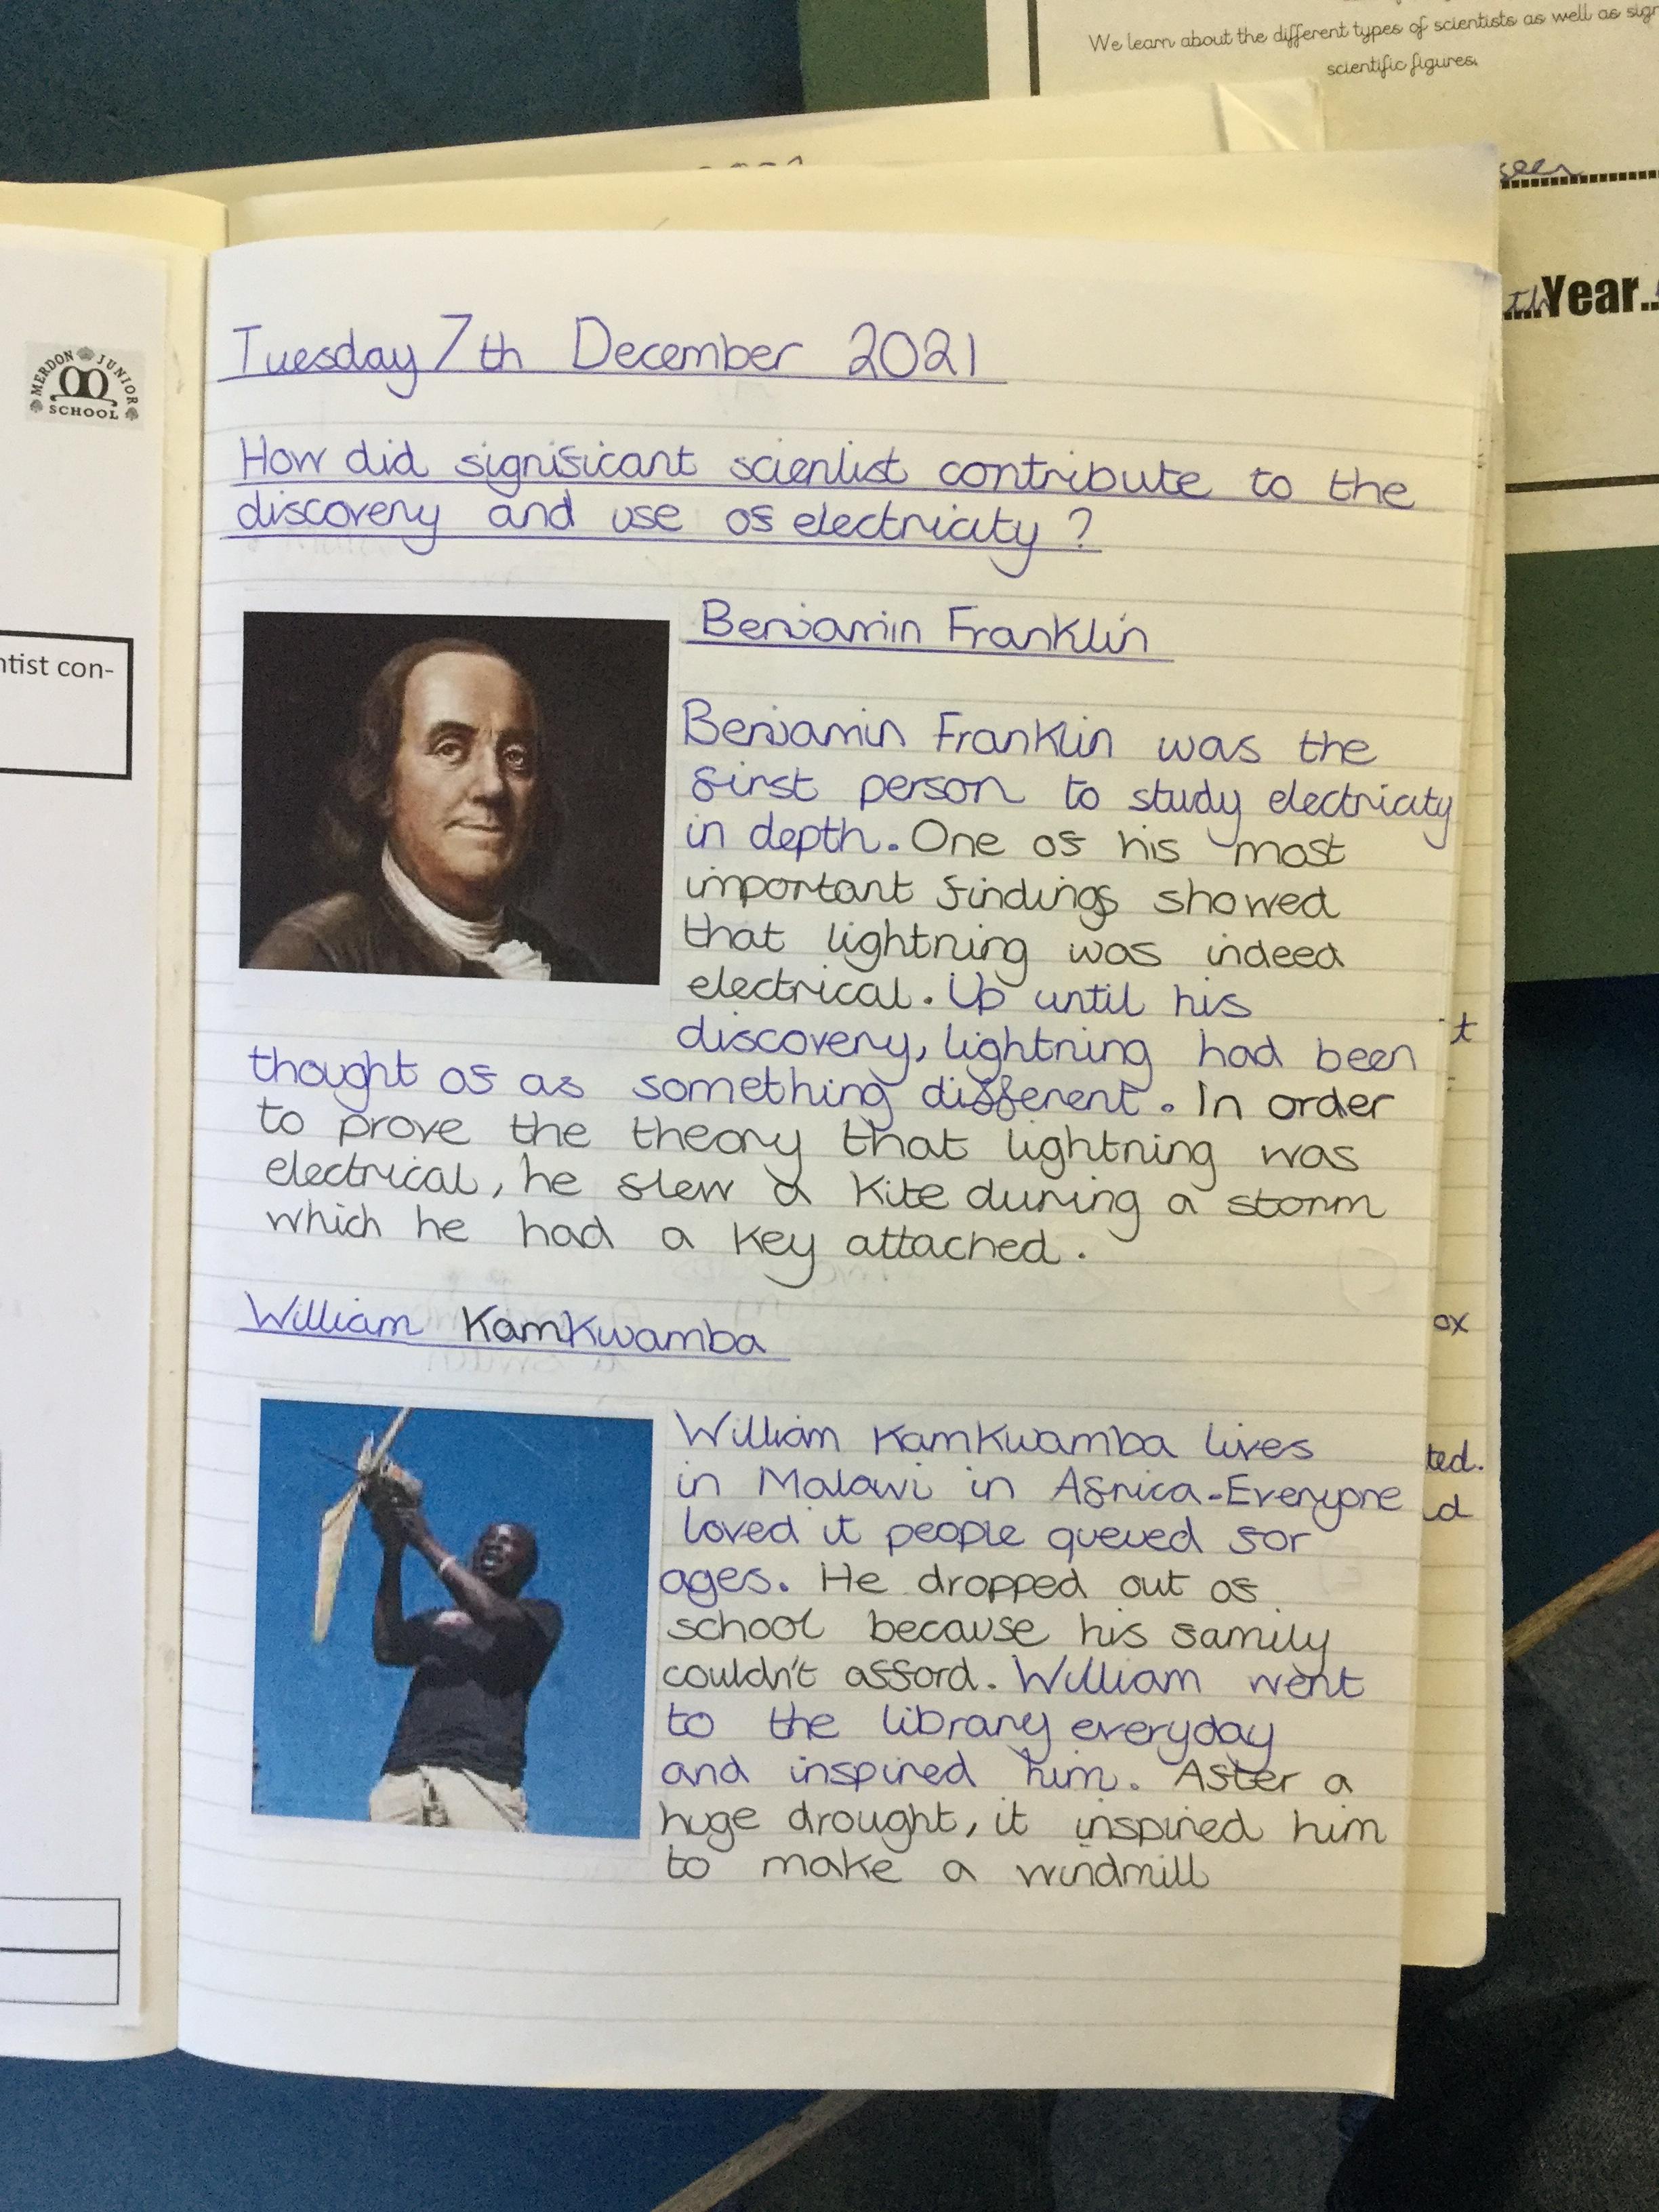 We learn about the different types of scientists as well as
scientific figures.
Year..
MERDON JUNIOR
SCHOOL
ntist con-
Tuesday 7th December 2021
How did significant scientist contribute to the
discovery and use of electricity?
Benjamin Franklin
Benjamin Franklin was the
first person to study electricity
in depth. One of his most
important findings showed
that lightning was indeed
electrical. Up until his
discovery, lightning had been
thought of as something different. In order
to prove the theory that lightning was
electrical, he flew a kite during a storm
which he had a key attached.
William Kamkwamba
William Kamkwamba lives
in Malawi in Africa. Everyone
loved it people queued for
ages. He dropped out of
school because his family
couldn't afford. William went
to the library everyday
and inspired him. After a
huge drought, it inspired him
to make a windmill
t
ox
ted.
d